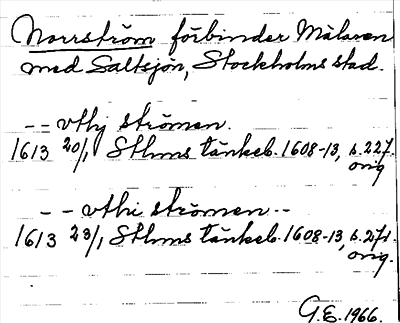 Norrström förbinder Mälaren
med Saltsjön, Stockholms stad.
-- vthj strömen.
1613 20/1 Sthms tänkeb. 1608-13, s. 227.
orig.
-- vthi strömen --
1613 23/1 Sthms tänkeb. 1608-13, s. 271.
orig.
G.E. 1966.